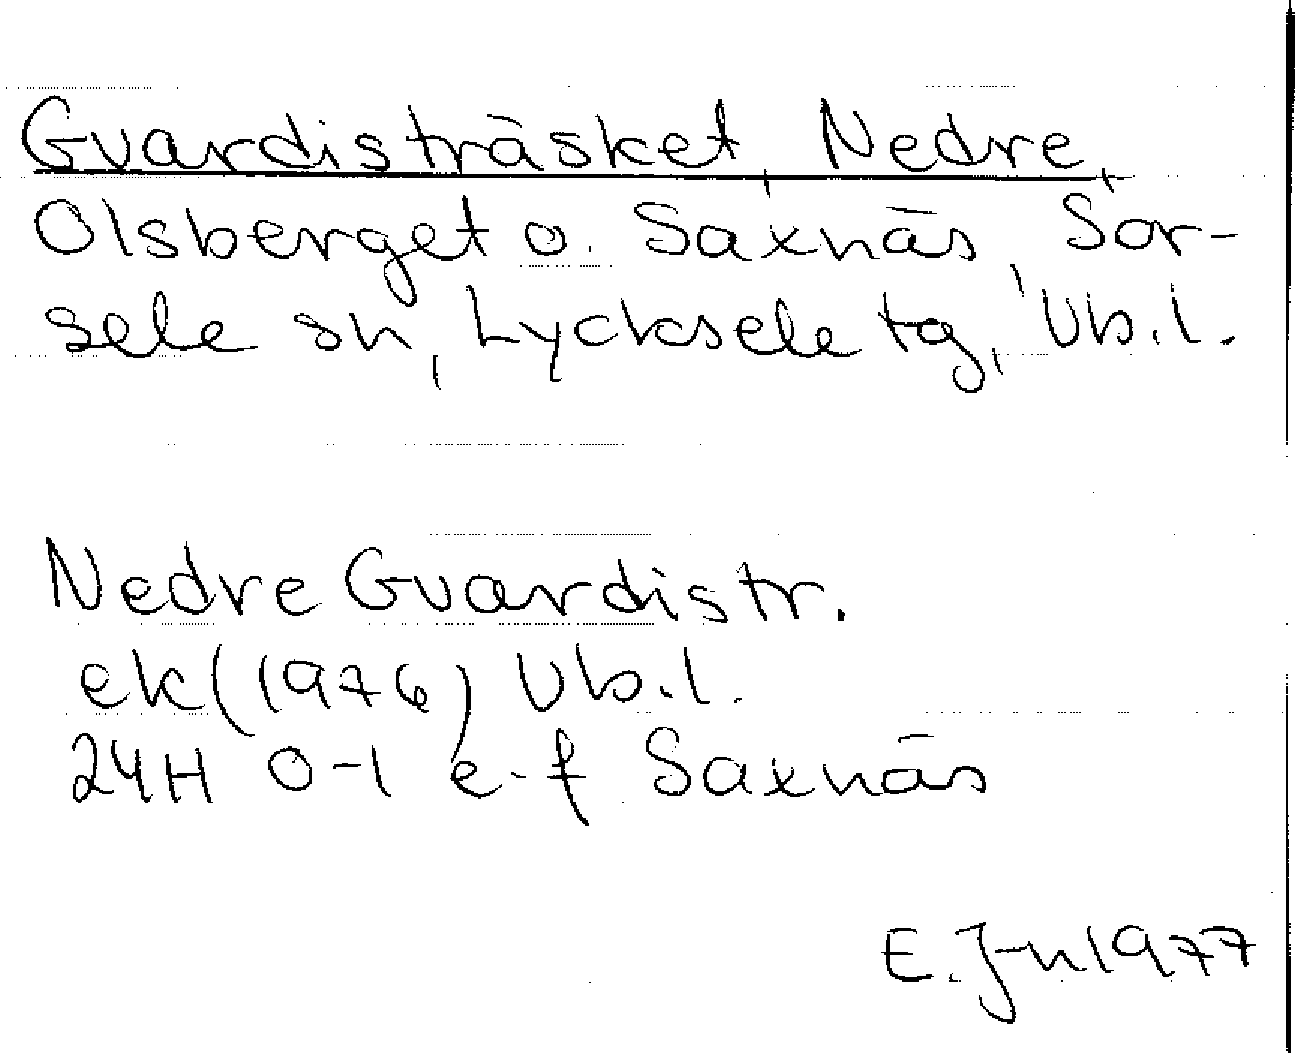 Gvardisträsket, Nedre,
Olsberget o. Saxnäs, Sor-
sele sn, Lycksele tg, Vb.l.
Nedre Gvardistr.
ek(1976) Vb.l.
24H 0-1 e-f Saxnäs
E.J-n 1977